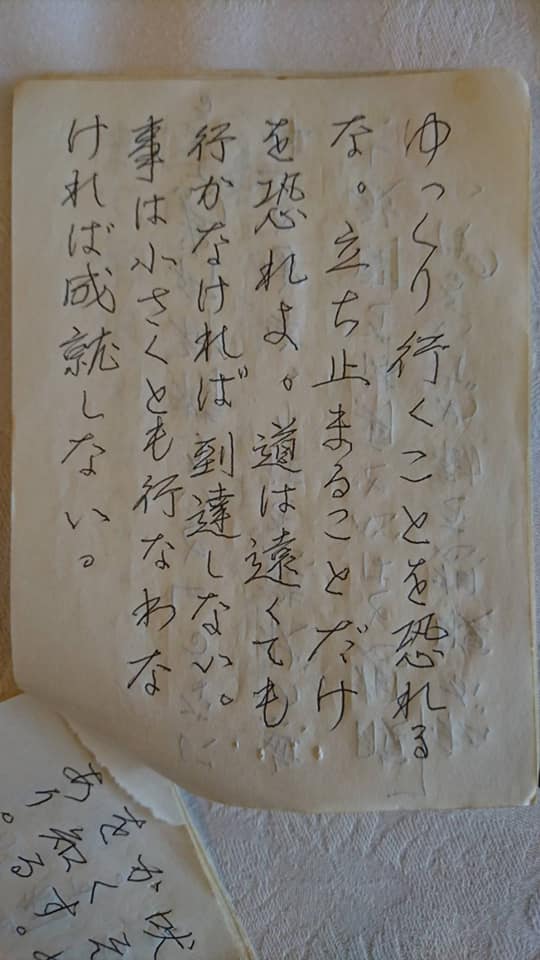 ゆっくり行くことを恐れる
な。立ち止まることだけ
を恐れよ。道は遠くても
行かなければ到達しない。
事は小さくとも行なわな
ければ成就しない。